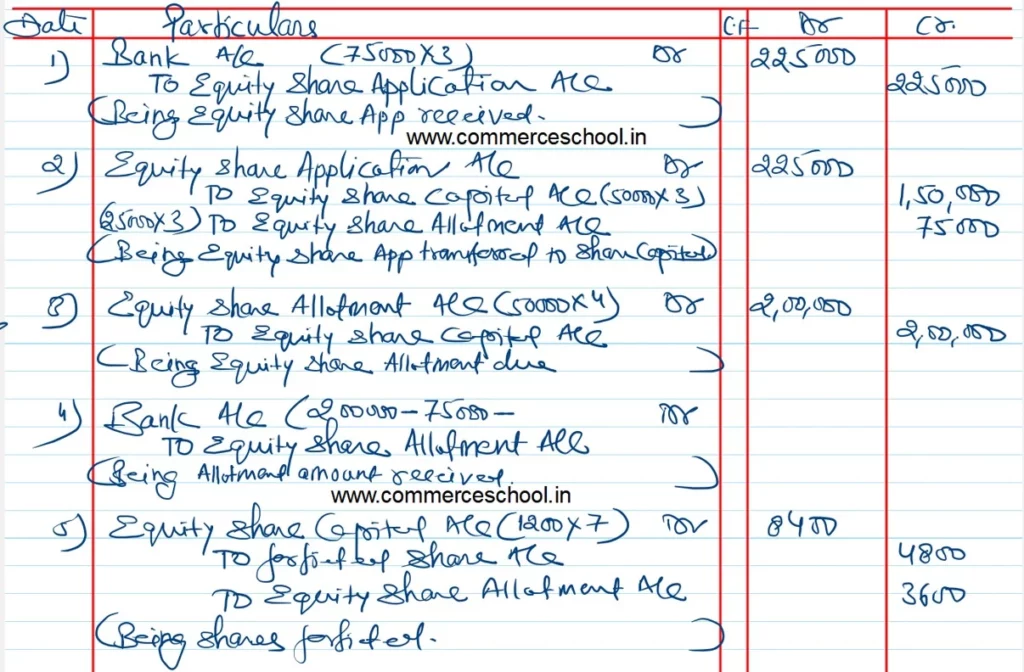 Date Particulars L.F Dr Cr.
1) Bank A/c (75000×3) Dr 225000
To Equity Share Application A/c 225000
(Being Equity Share App received.)
www.commerceschool.in
2) Equity Share Application A/c Dr 225000
To Equity Share Capital A/c (50000×3) 1,50,000
(25000×3) To Equity Share Allotment A/c 75000
(Being Equity Share App transferred to Share Capital)
3) Equity Share Allotment A/c (50000×4) Dr 2,00,000
To Equity Share Capital A/c 2,00,000
(Being Equity Share Allotment due)
4) Bank A/c (200000-75000- Dr
To Equity Share Allotment A/c
(Being Allotment amount received.)
www.commerceschool.in
5) Equity Share Capital A/c (1200×7) Dr 8400
To forfieted Share A/c 4800
To Equity Share Allotment A/c 3600
(Being Shares forfieted.)